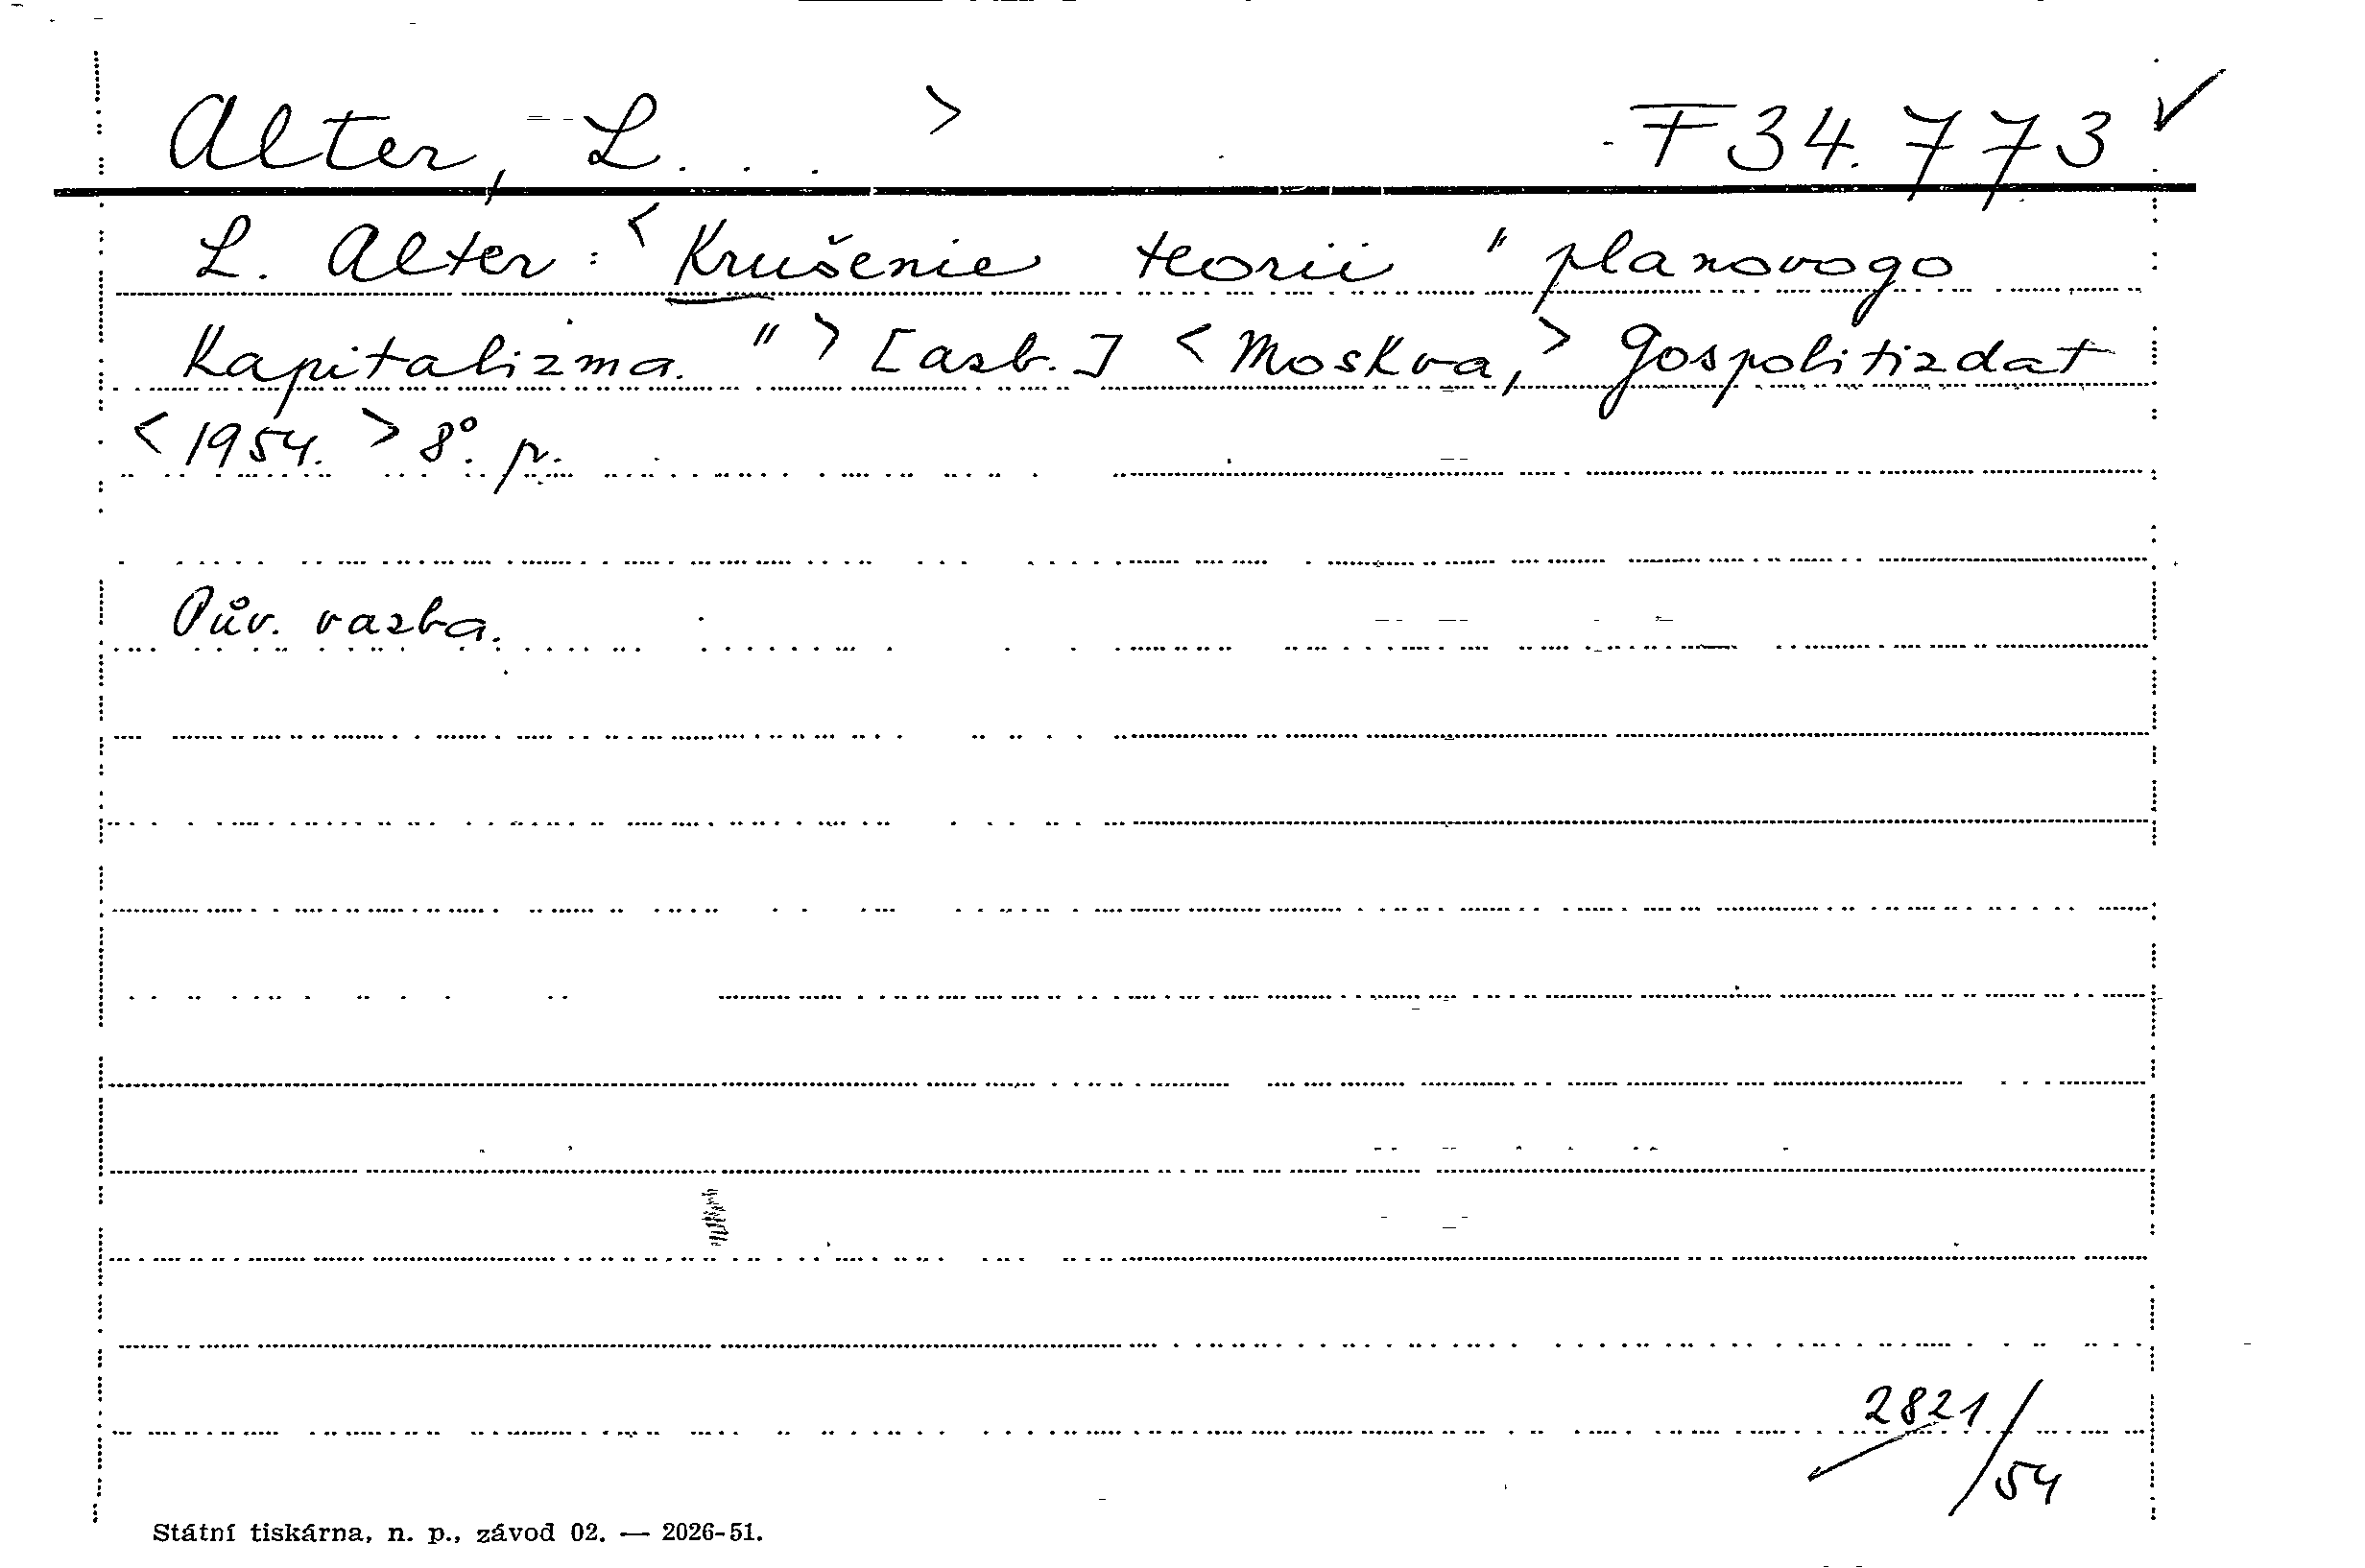 Alter, L. . . > F 34.773 ✓
L. Alter: <Krušenie teorii "planovogo
Kapitalizma."> [azb.] <Moskva,> Gospolitizdat
<1954.> 8°. p.
Pův. vazba.
2821/54
Státní tiskárna, n. p., závod 02. — 2026-51.